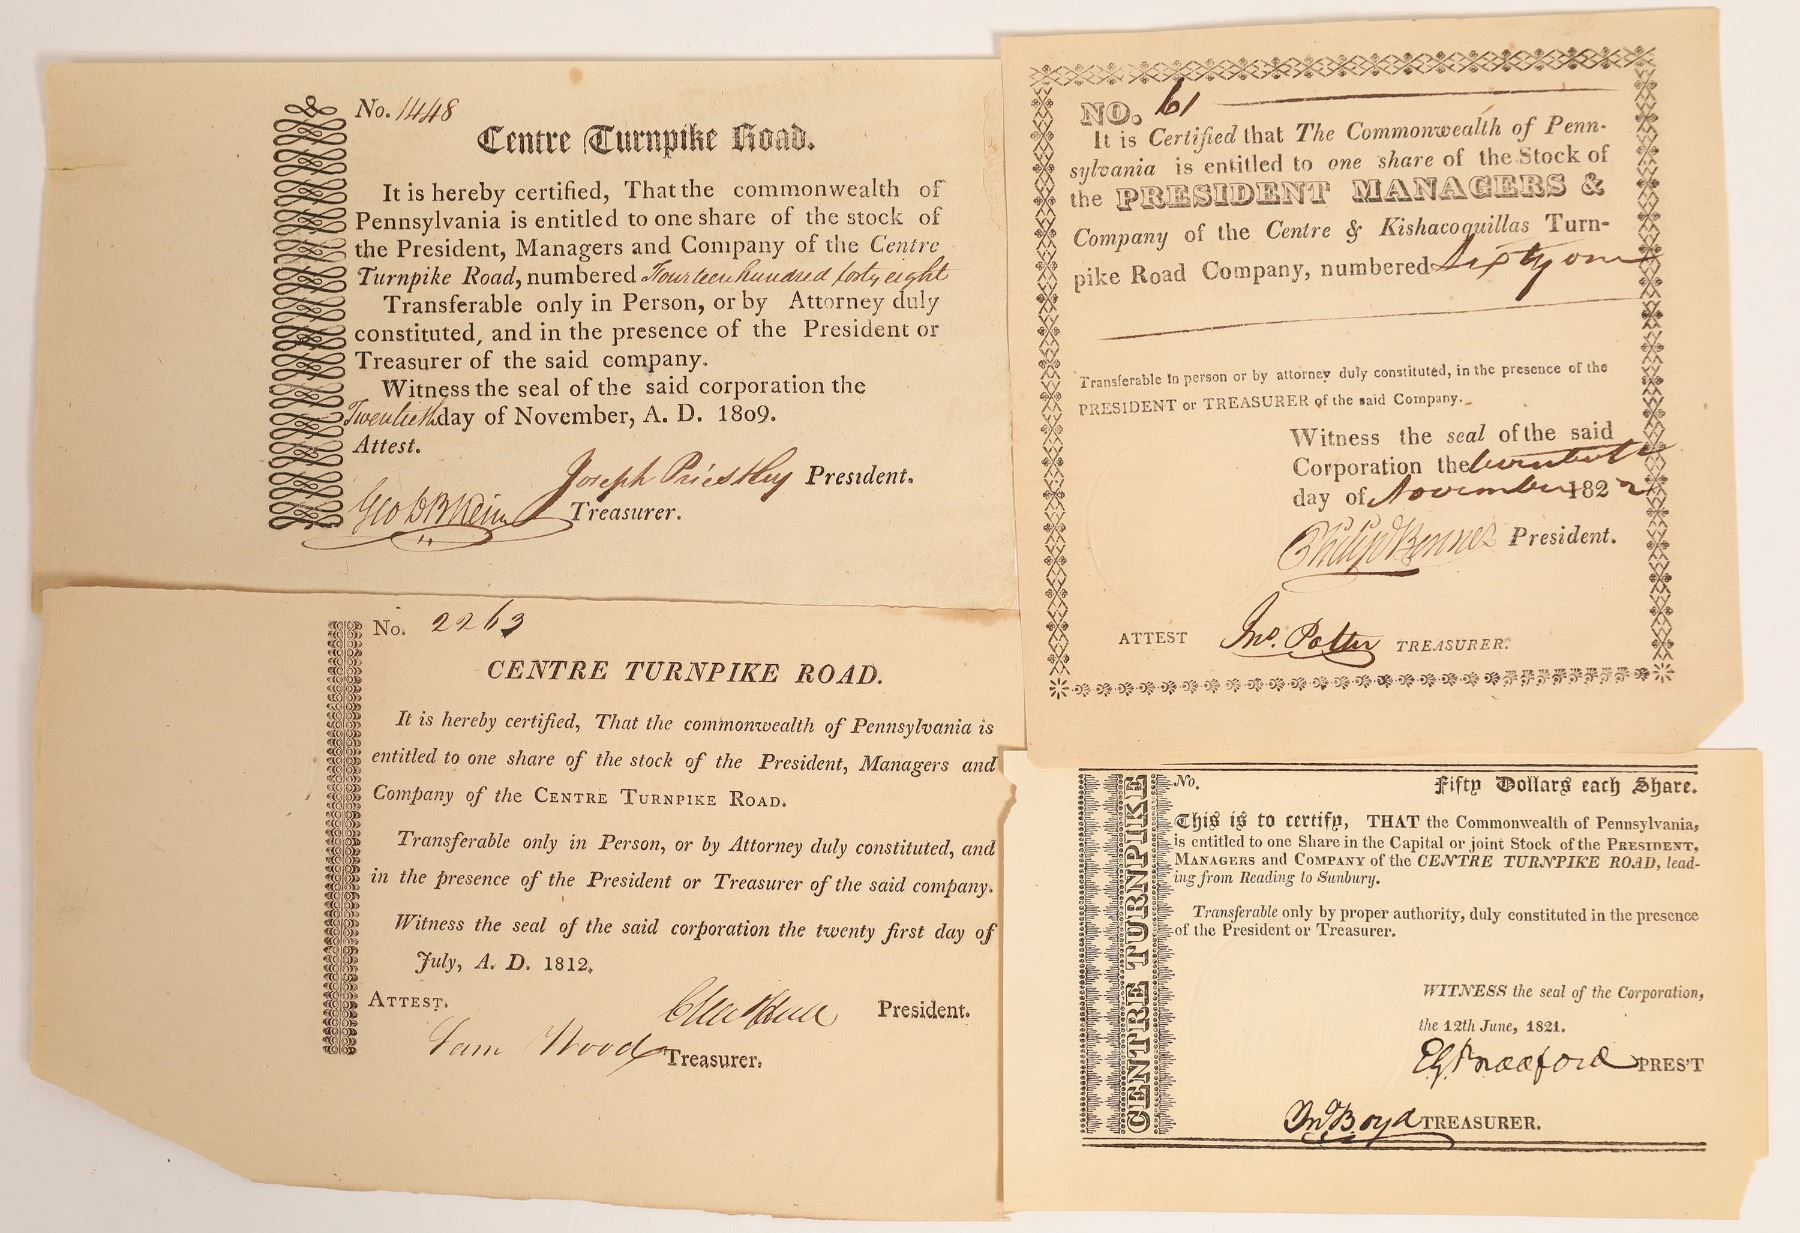 No. 1448
Centre Turnpike Road.
It is hereby certified, That the commonwealth of
Pennsylvania is entitled to one share of the stock of
the President, Managers and Company of the Centre
Turnpike Road, numbered Fourteen hundred forty eight
Transferable only in Person, or by Attorney duly
constituted, and in the presence of the President or
Treasurer of the said company.
Witness the seal of the said corporation the
Twentieth day of November, A. D. 1809.
Attest.
Joseph Priestley President.
Geo D B Keim Treasurer.
NO. 61
It is Certified that The Commonwealth of Penn-
sylvania is entitled to one share of the Stock of
the PRESIDENT MANAGERS &
Company of the Centre & Kishacoquillas Turn-
pike Road Company, numbered Sixty one
Transferable In person or by attorney duly constituted, in the presence of the
PRESIDENT or TREASURER of the said Company.
Witness the seal of the said
Corporation the twentieth
day of November 1822
Philip Benner President.
ATTEST Jno. Potter TREASURER.
No. 2263
CENTRE TURNPIKE ROAD.
It is hereby certified, That the commonwealth of Pennsylvania is
entitled to one share of the stock of the President, Managers and
Company of the CENTRE TURNPIKE ROAD.
Transferable only in Person, or by Attorney duly constituted, and
in the presence of the President or Treasurer of the said company.
Witness the seal of the said corporation the twenty first day of
July, A. D. 1812.
ATTEST.
President.
Sam Wood Treasurer.
CENTRE TURNPIKE
No. Fifty Dollars each Share.
This is to certify, THAT the Commonwealth of Pennsylvania,
is entitled to one Share in the Capital or joint Stock of the PRESIDENT,
MANAGERS and COMPANY of the CENTRE TURNPIKE ROAD, lead-
ing from Reading to Sunbury.
Transferable only by proper authority, duly constituted in the presence
of the President or Treasurer.
WITNESS the seal of the Corporation,
the 12th June, 1821.
EG Bradford PRES'T
Jno Boyd TREASURER.